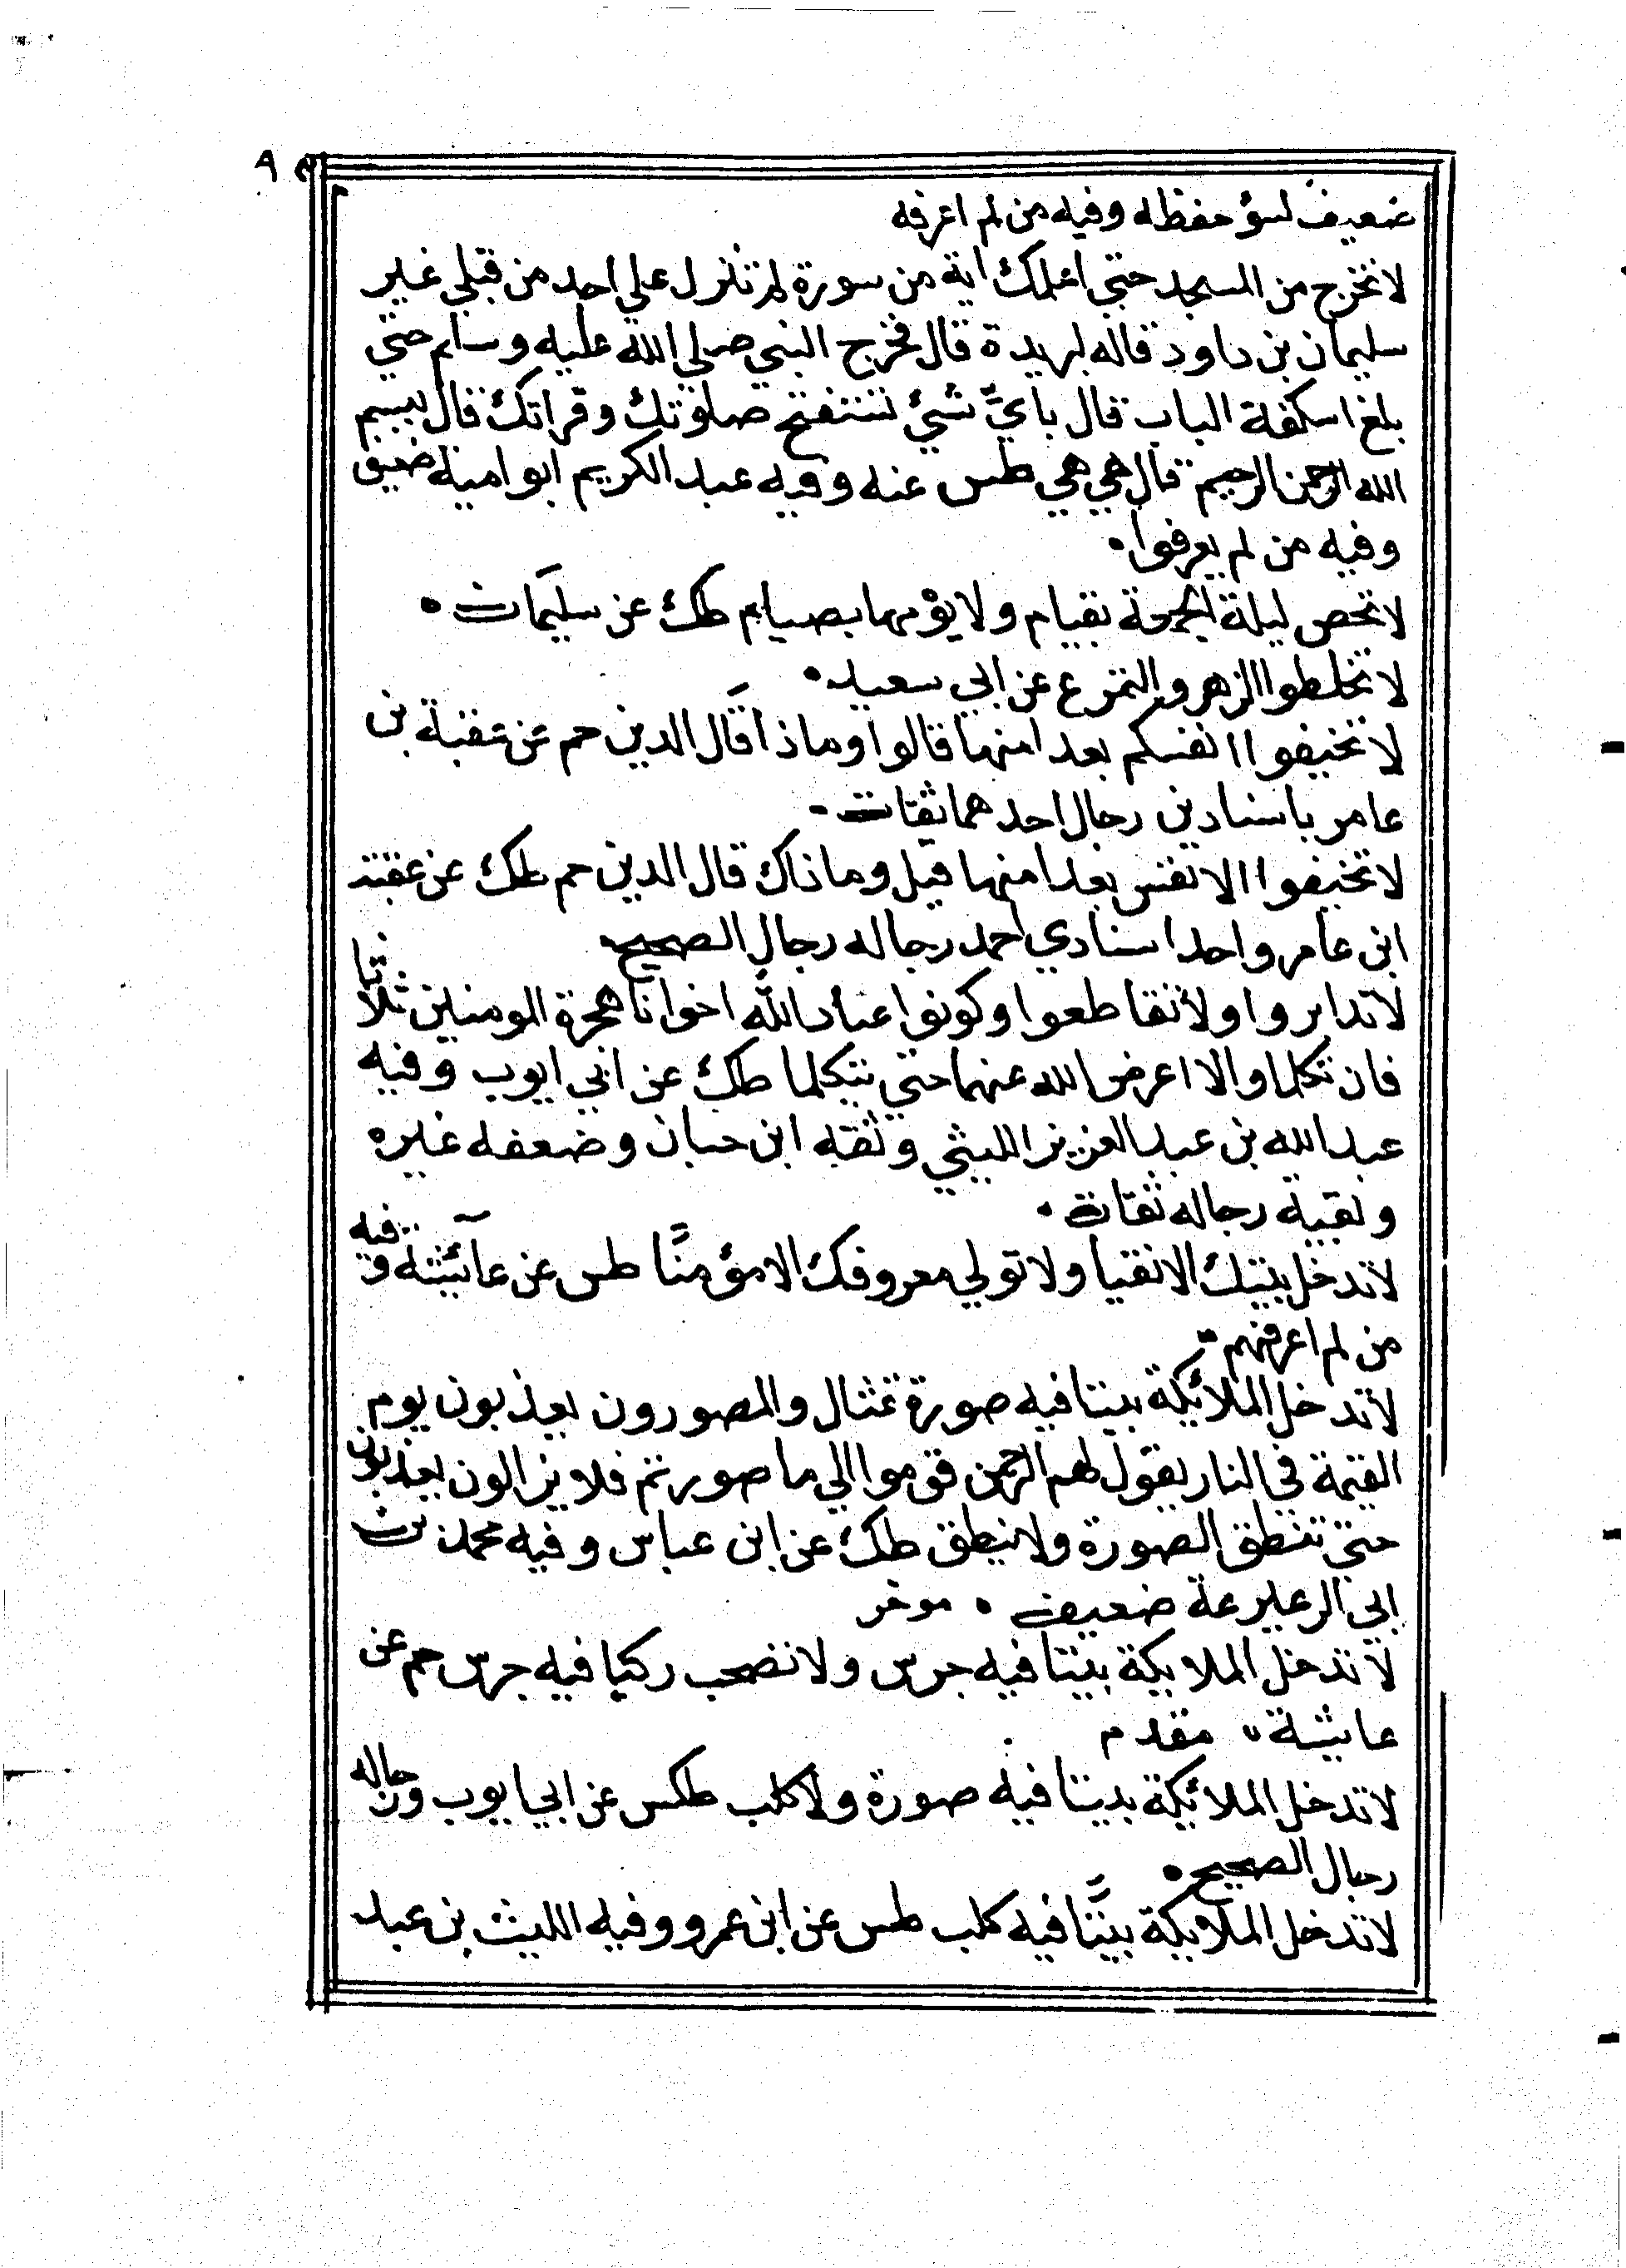 ٩
ضعيف لسؤ حفظه وفيه من لم اعرفه
لا تخرج من المسجد حتي اعلمك اية من سورة لم تنزل علي احد من قبلي غير
سليمان بن داود قاله لبريدة قال فخرج النبي صلي الله عليه وسلم حتي
بلغ اسكفة الباب قال بايِّ شئ تستفتح صلوتك وقراتك قال ببسم
الله الرحمن الرحيم قال هي هي طس عنه وفيه عبد الكريم ابو امية ضعيف
وفيه من لم يعرفوا ٠
لا تخص ليلة الجمعة بقيام ولا يؤمها بصيام طك عن سليمان ٠
لا تخلطوا الزهو والتمر ع عن ابي سعيد ٠
لا تخيفوا انفسكم بعد امنها قالوا وماذا قال الدين حم عن عقبة بن
عامر باسنادين رجال احدهما ثقات ٠
لا تخيفوا الانفس بعد امنها قيل وما ذاك قال الدين حم طك عن عقبة
ابن عامر واحد اسنادي احمد رجاله رجال الصحيح
لا تدابروا ولا تقاطعوا وكونوا عباد الله اخوانا هجرة المومنين ثلاثا
فان تكلما والا اعرض الله عنهما حتي يتكلما طك عن ابي ايوب وفيه
عبد الله بن عبد العزيز الليثي وثقه ابن حبان وضعفه غيره
وبقية رجاله ثقات ٠
لا تدخل بيتك الا تقيا ولا تولي معروفك الا مؤمنًا طس عن عائشة وفيه
من لم اعرفهم ٠
لا تدخل الملائكة بيتا فيه صورة تمثال والمصورون يعذبون يوم
القيمة في النار يقول لهم الرحمن قوموا الي ما صورتم فلا يزالون يعذبون
حتي تنطق الصورة ولا تنطق طك عن ابن عباس وفيه محمد بن
ابي الزعيزعة ضعيف ٠ موخر
لا تدخل الملايكة بيتا فيه جرس ولا تصحب ركبا فيه جرس حم عن
عايشة ٠ مقدم
لا تدخل الملائكة بيتا فيه صورة ولا كلب طكس عن ابي ايوب ورجاله
رجال الصحيح ٠
لا تدخل الملايكة بيتًا فيه كلب طس عن ابن عمرو وفيه الليث بن عبد